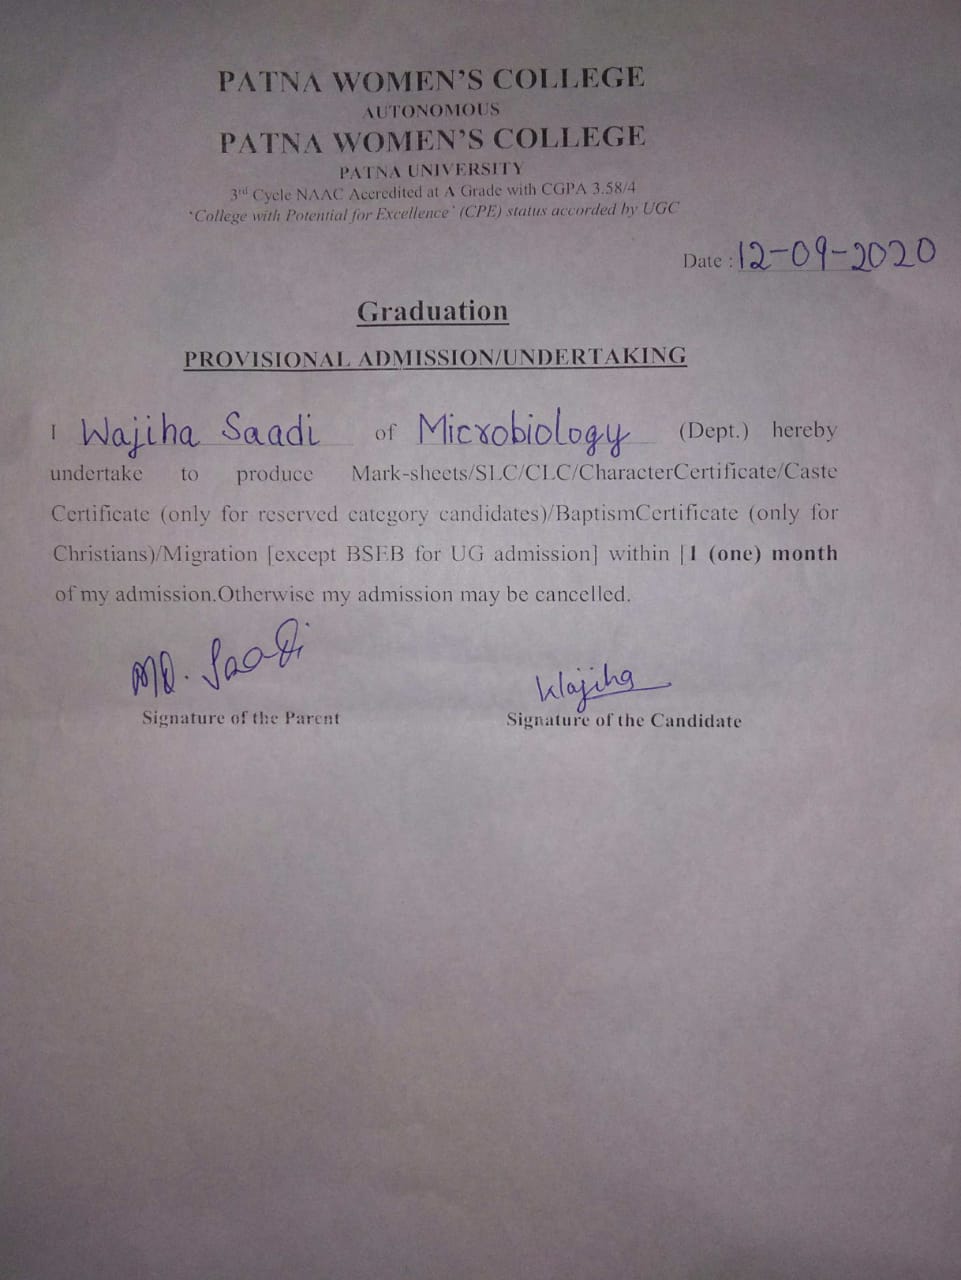 PATNA WOMEN'S COLLEGE
AUTONOMOUS
PATNA WOMEN'S COLLEGE
PATNA UNIVERSITY
3rd Cycle NAAC Accredited at A Grade with CGPA 3.58/4
'College with Potential for Excellence' (CPE) status accorded by UGC
Date : 12-09-2020
Graduation
PROVISIONAL ADMISSION/UNDERTAKING
I Wajiha Saadi of Microbiology (Dept.) hereby
undertake to produce Mark-sheets/SLC/CLC/CharacterCertificate/Caste
Certificate (only for reserved category candidates)/BaptismCertificate (only for
Christians)/Migration [except BSEB for UG admission] within [1 (one) month
of my admission.Otherwise my admission may be cancelled.
MD. Saadi Wajiha
Signature of the Parent Signature of the Candidate